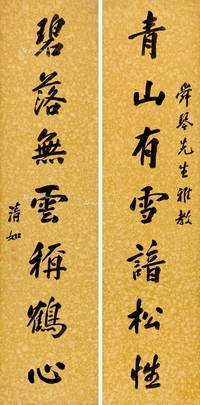 舜琴先生雅教
青山有雪諳松性
碧落無雲稱鶴心
清如